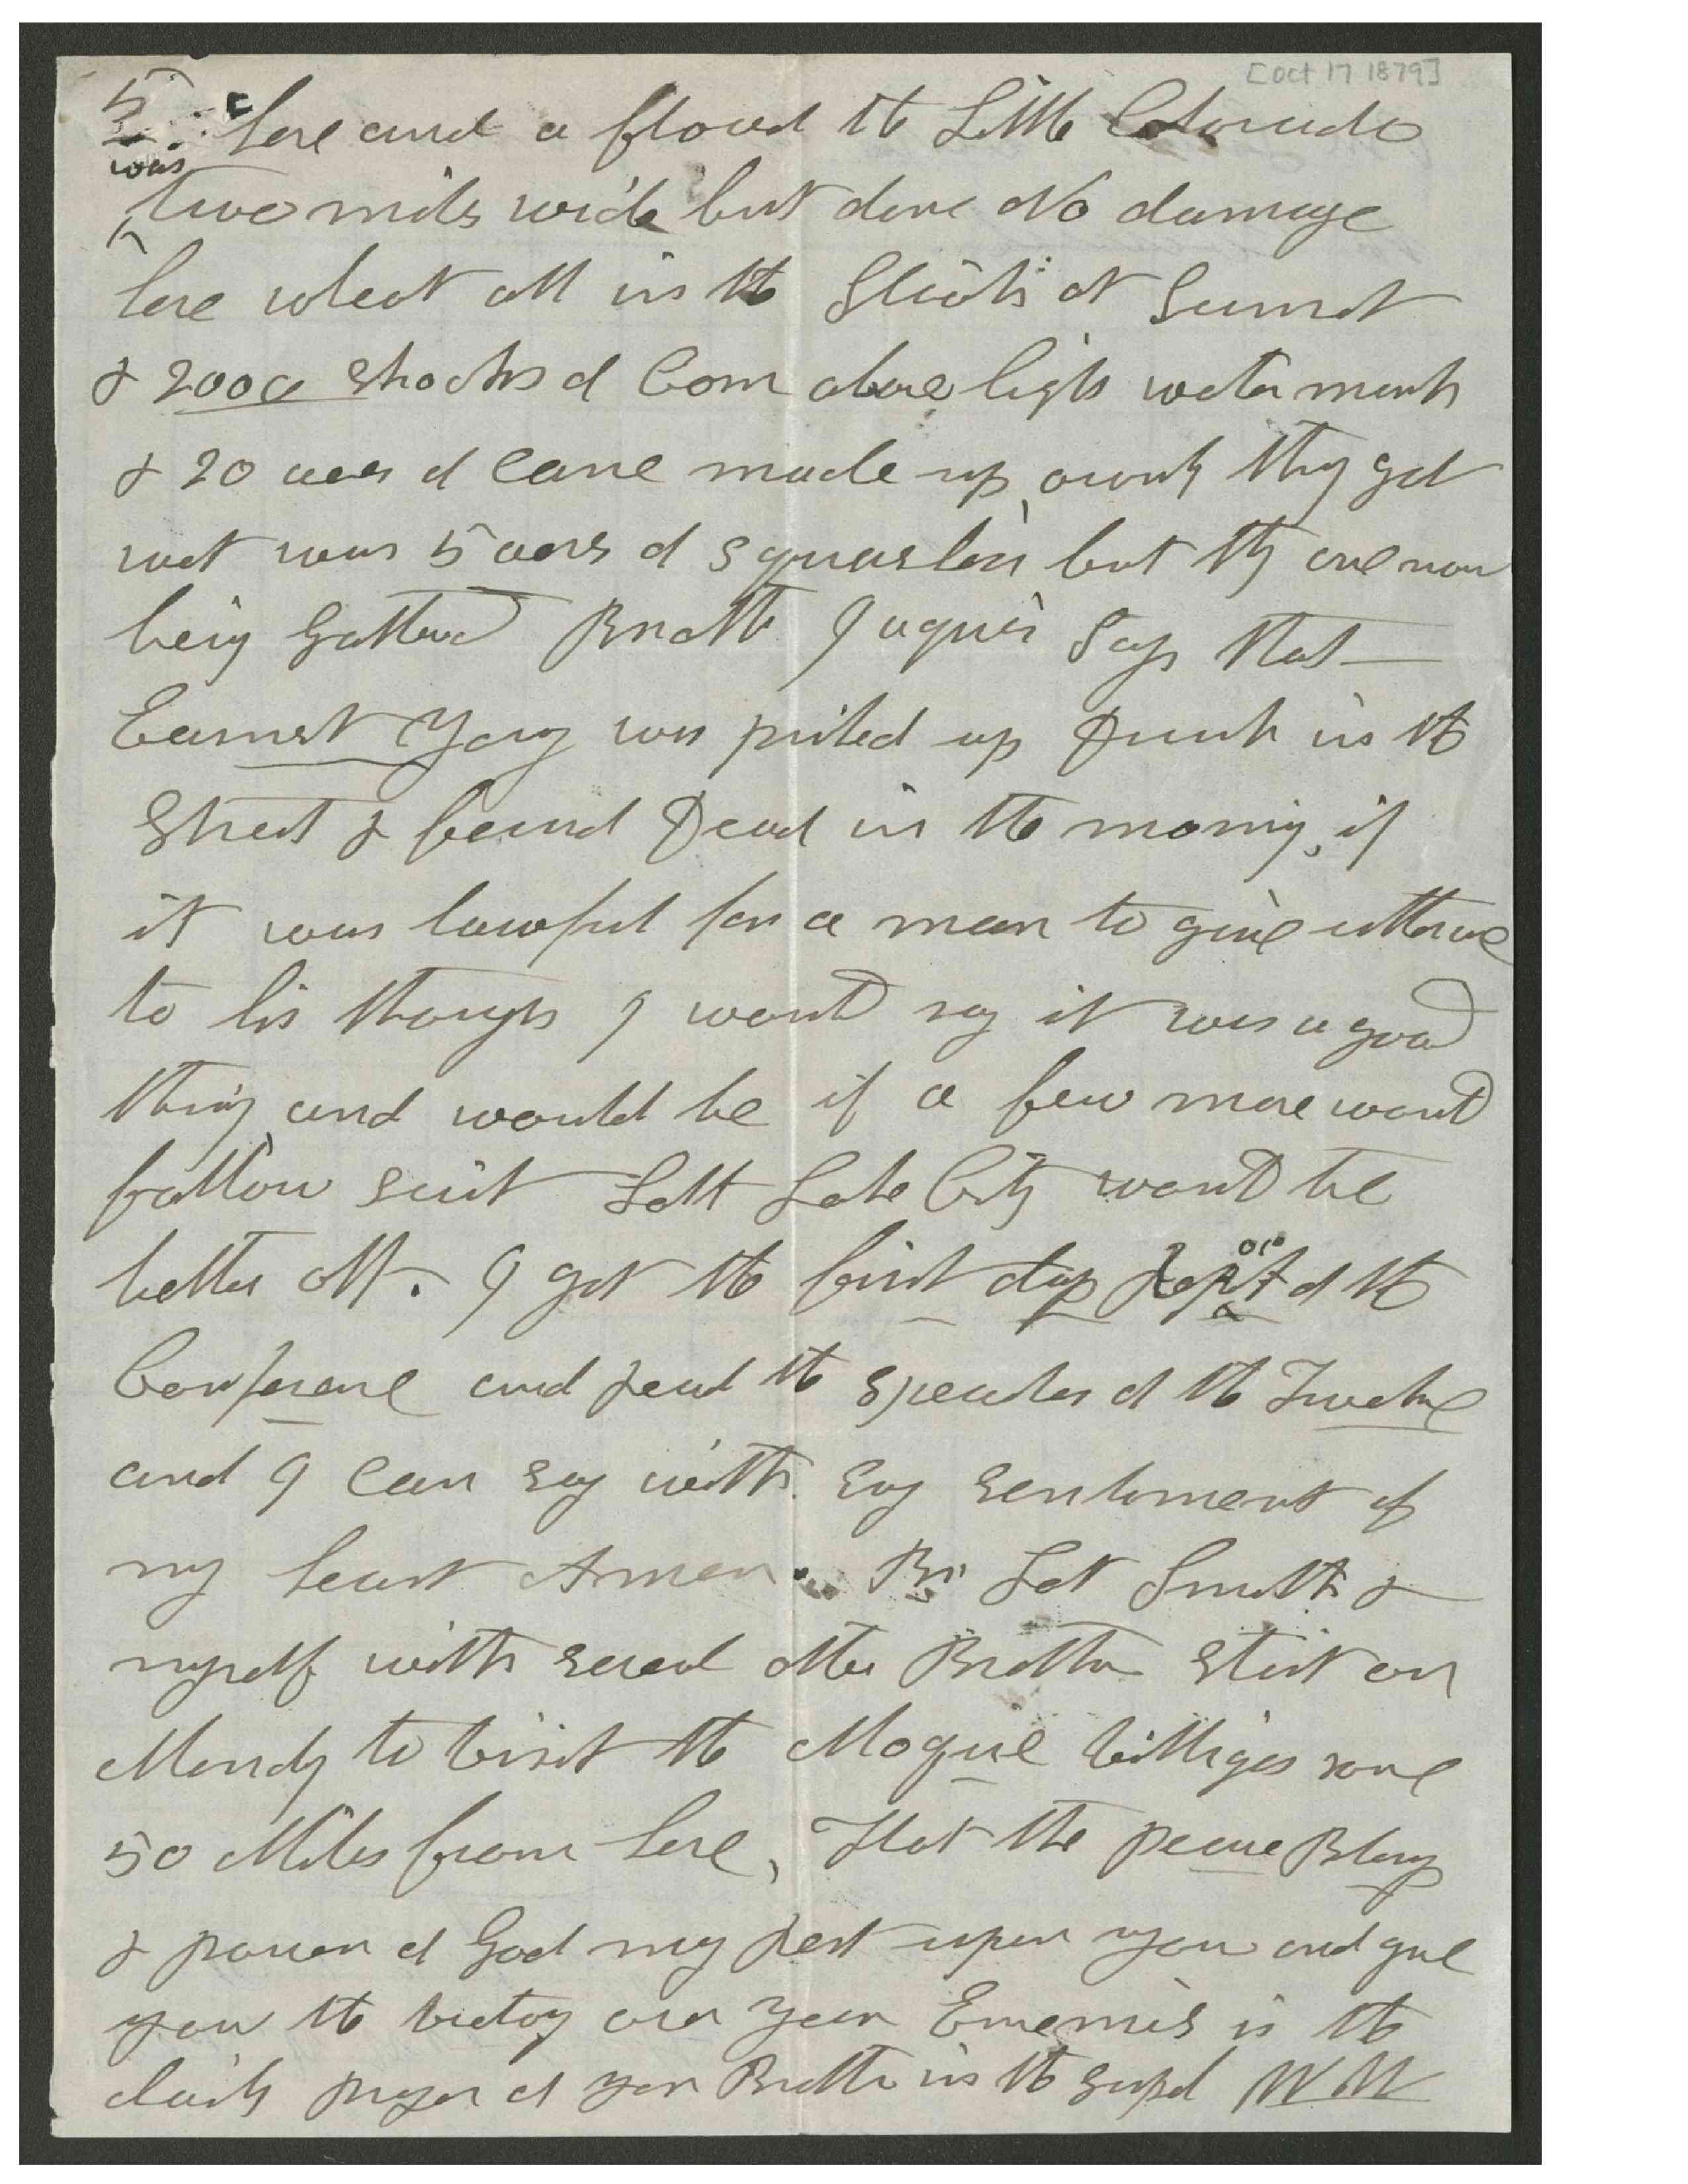 [Oct 17 1879]
5
here and a flood the Little Colorado
was
two miles wide but done No damage
here wheat all in the Stack at Sunset
& 2000 Shocks of Corn above high water mark
& 20 acres of Cane made up ownly they got
wet was 5 acers of Squashes but they are now
being Gathered Brother Jaques Says that
Earnest Yong was picked up Drunk in the
Street & found Dead in the morning, if
it was lawful for a man to give utterance
to his thoughts I would say it was a good
thing and would be if a few more would
follow suit Salt Lake City would be
better off. I got the first days Report of the
Conference and read the speaches of the Twelve
and I can say with evry sentiment of
my heart Amen. Br Lot Smith &
myself with several other Brethren Start on
Mondy to visit the Moquie villiges some
50 Miles from here, That the peace Blessing
& power of God my rest upon you and give
you the victory over your Enemies is the
daily prayer of your Brother in the Gospel W W